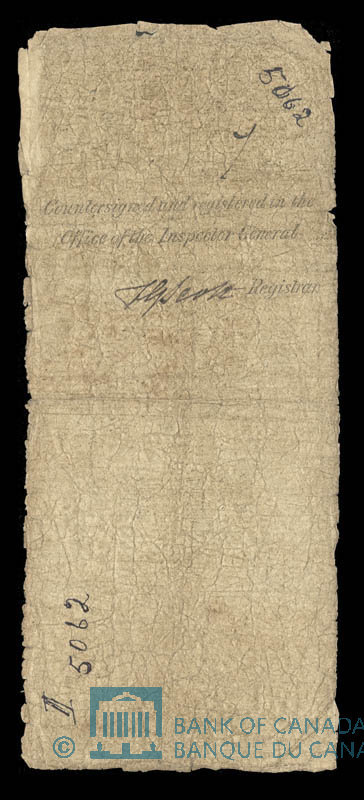 5062
Countersigned and registered in the
Office of the Inspector General
Registrar
5062
II
© BANK OF CANADA
BANQUE DU CANA